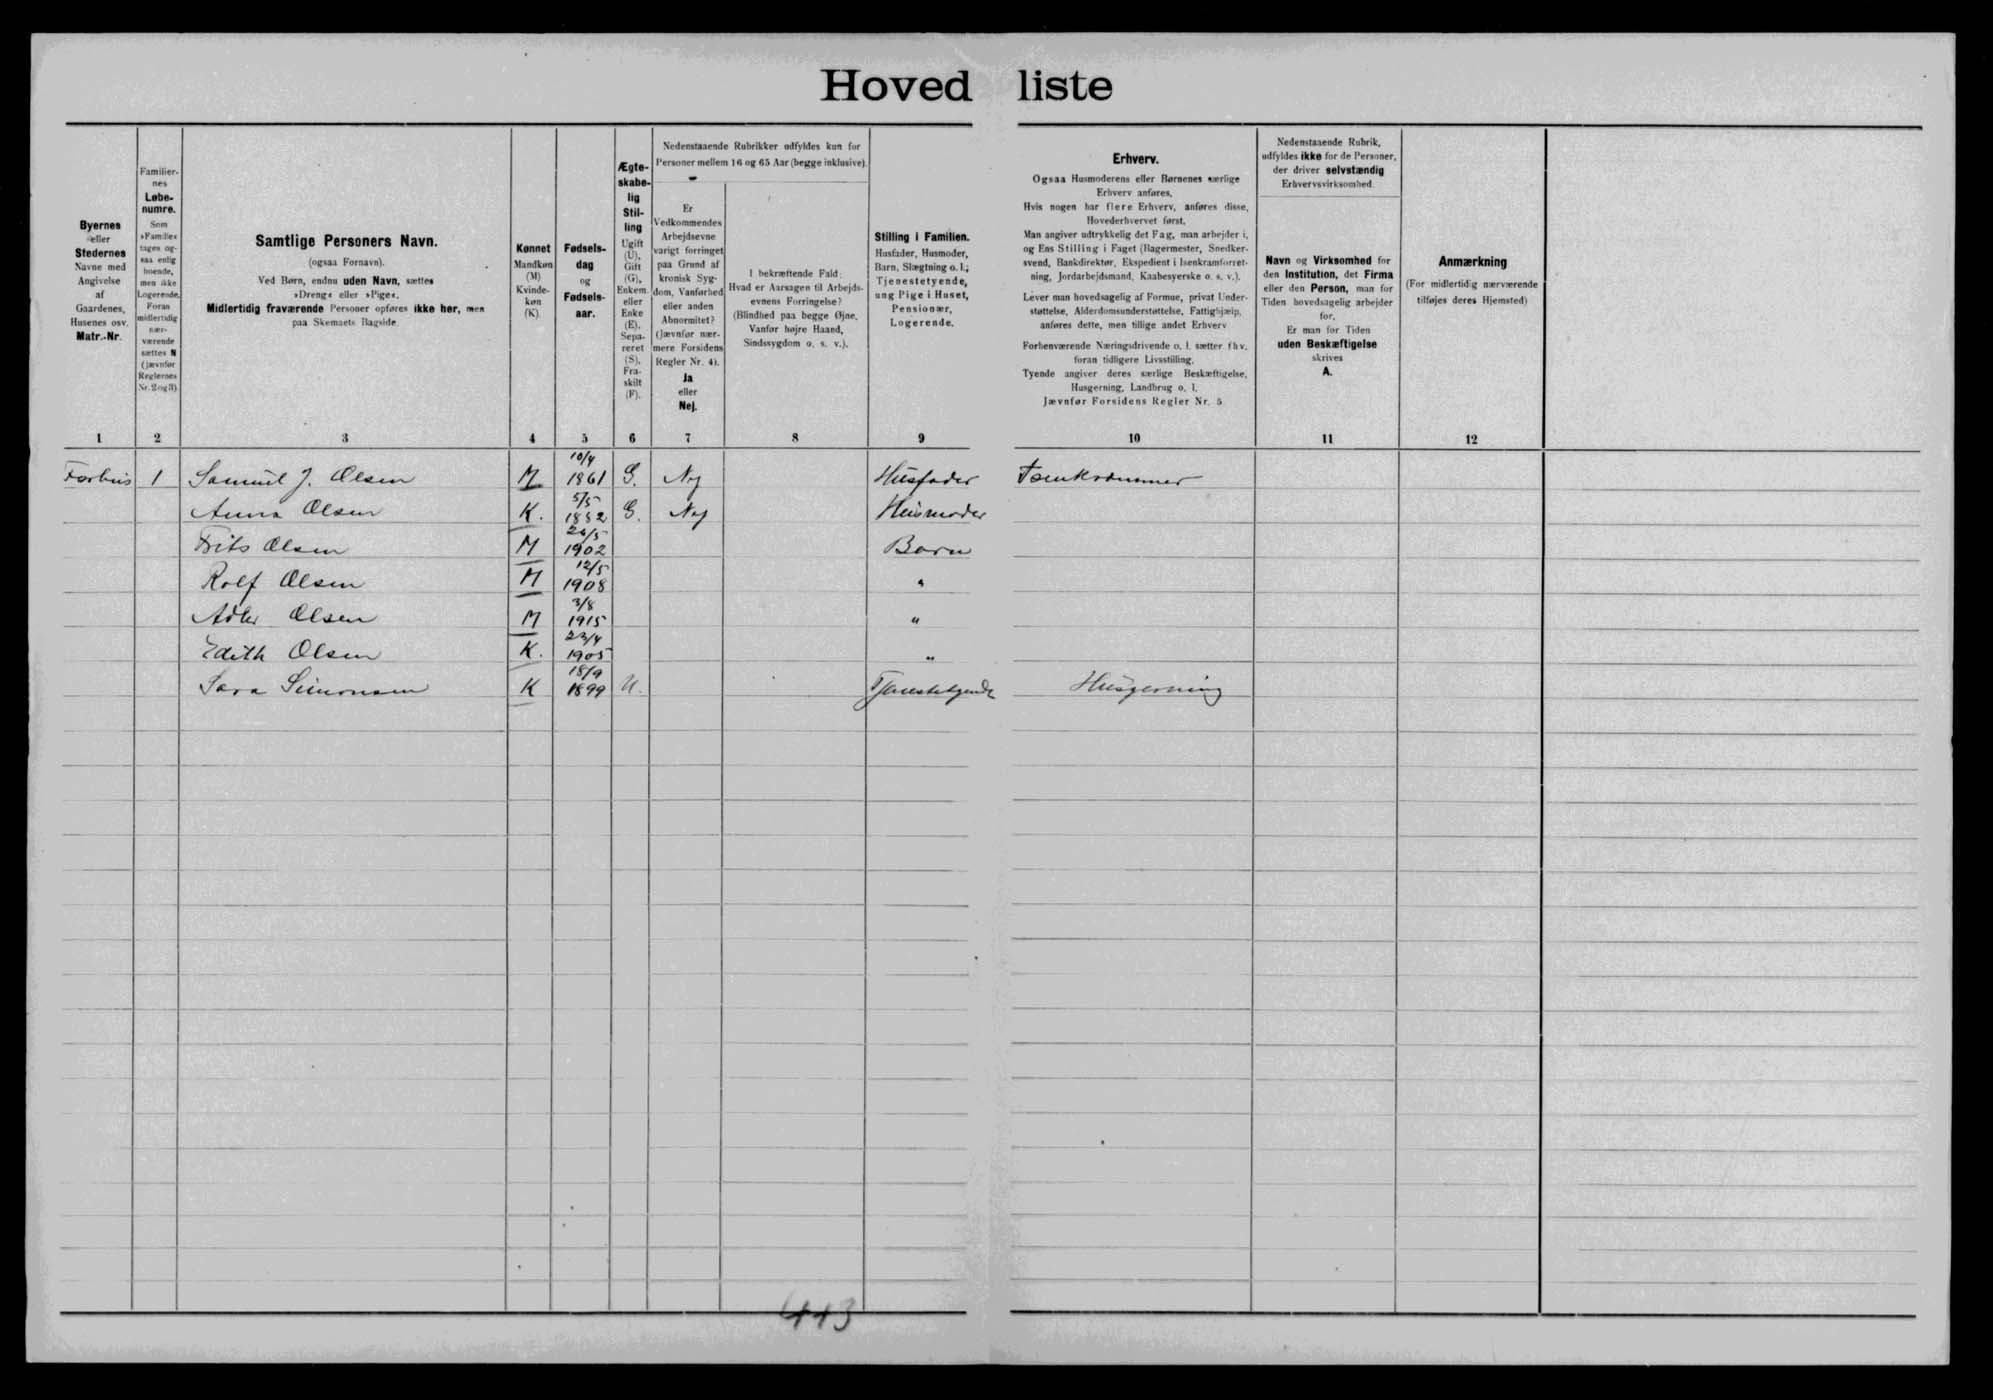 Hovedliste
Byernes
eller
Stedernes
Navne med
Angivelse
af
Gaardenes,
Husenes osv.
Matr.-Nr.
Familier-
nes
Løbe-
numre.
Som
»Familie«
tages og-
saa enlig
boende,
men ikke
Logerende.
Foran
midlertidig
nær-
værende
sættes N
(jævnfør
Reglernes
Nr. 2 og 3)
Samtlige Personers Navn.
(ogsaa Fornavn).
Ved Børn, endnu uden Navn, sættes
»Dreng« eller »Pige«.
Midlertidig fraværende Personer opføres ikke her, men
paa Skemaets Bagside.
Kønnet
Mandkøn
(M)
Kvinde-
køn
(K).
Fødsels-
dag
og
Fødsels-
aar.
Ægte-
skabe-
lig
Stil-
ling
Ugift
(U),
Gift
(G),
Enkem.
eller
Enke
(E).
Sepa-
reret
(S),
Fra-
skilt
(F).
Nedenstaaende Rubrikker udfyldes kun for
Personer mellem 16 og 65 Aar (begge inklusive).
Er
Vedkommendes
Arbejdsevne
varigt forringet
paa Grund af
kronisk Syg-
dom, Vanførhed
eller anden
Abnormitet?
(Jævnfør nær-
mere Forsidens
Regler Nr. 4).
Ja
eller
Nej.
I bekræftende Fald:
Hvad er Aarsagen til Arbejds-
evnens Forringelse?
(Blindhed paa begge Øjne,
Vanfør højre Haand,
Sindssygdom o. s. v.).
Stilling i Familien.
Husfader, Husmoder,
Barn, Slægtning o. l.;
Tjenestetyende,
ung Pige i Huset,
Pensionær,
Logerende.
Erhverv.
Ogsaa Husmoderens eller Børnenes særlige
Erhverv anføres.
Hvis nogen har flere Erhverv, anføres disse,
Hovederhvervet først.
Man angiver udtrykkelig det Fag, man arbejder i,
og Ens Stilling i Faget (Bagermester, Snedker-
svend, Bankdirektør, Ekspedient i Isenkramforret-
ning, Jordarbejdsmand, Kaabesyerske o. s. v.).
Lever man hovedsagelig af Formue, privat Under-
støttelse, Alderdomsunderstøttelse, Fattighjælp,
anføres dette, men tillige andet Erhverv
Forhenværende Næringsdrivende o. l. sætter fhv.
foran tidligere Livsstilling.
Tyende angiver deres særlige Beskæftigelse,
Husgerning, Landbrug o. l.
Jævnfør Forsidens Regler Nr. 5
Nedenstaaende Rubrik,
udfyldes ikke for de Personer,
der driver selvstændig
Erhvervsvirksomhed.
Navn og Virksomhed for
den Institution, det Firma
eller den Person, man for
Tiden hovedsagelig arbejder
for.
Er man for Tiden
uden Beskæftigelse
skrives
A.
Anmærkning
(For midlertidig nærværende
tilføjes deres Hjemsted)
1 2 3 4 5 6 7 8 9 10 11 12
Forhus 1 Samuel J. Olsen M 10/4 1861 G. Nej Husfader Isenkræmmer
Anna Olsen K. 5/5 G. Nej Husmoder
Frits Olsen M 1902 Barn
Rolf Olsen M 12/5 1908 "
Olsen M 3/8 1915 "
Edith Olsen K. 23/4 1905 "
Sara Simonsen K 18/9 1899 U. Tjenestetyende Husgerning
443